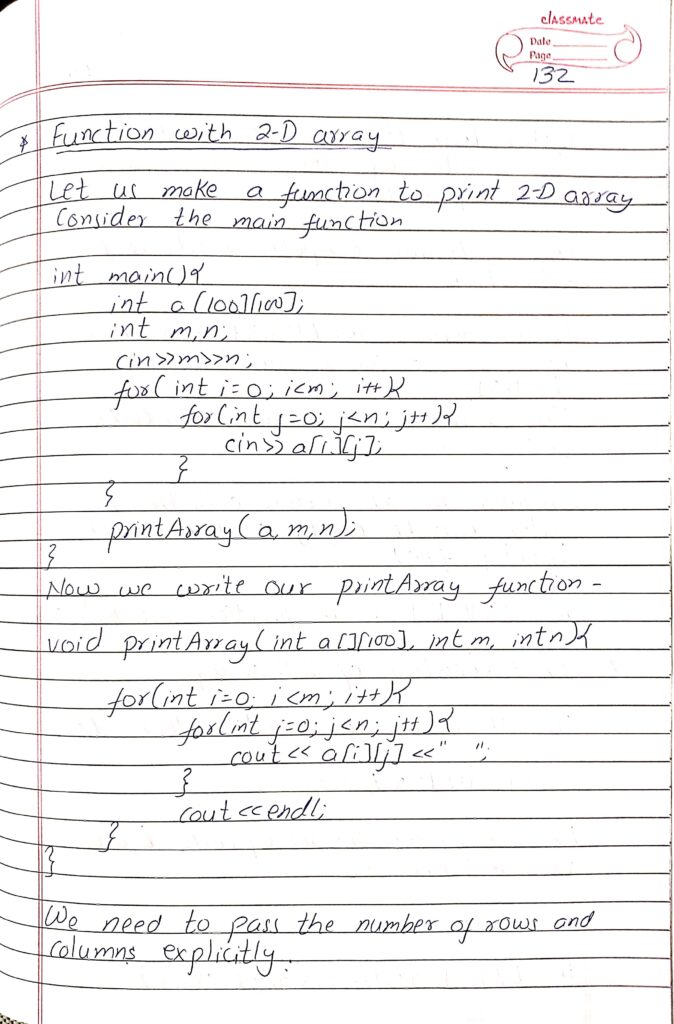 classmate
Date
Page
132
* Function with 2-D array
Let us make a function to print 2-D array
Consider the main function
int main(){
int a[100][100];
int m,n;
cin>>m>>n;
for(int i=0; i<m; i++){
for(int j=0; j<n; j++){
cin>> a[i][j];
}
}
printArray(a,m,n);
}
Now we write our printArray function -
void printArray(int a[][100], int m, int n){
for(int i=0; i<m; i++){
for(int j=0; j<n; j++){
cout << a[i][j] <<" ";
}
cout<<endl;
}
}
We need to pass the number of rows and
columns explicitly.